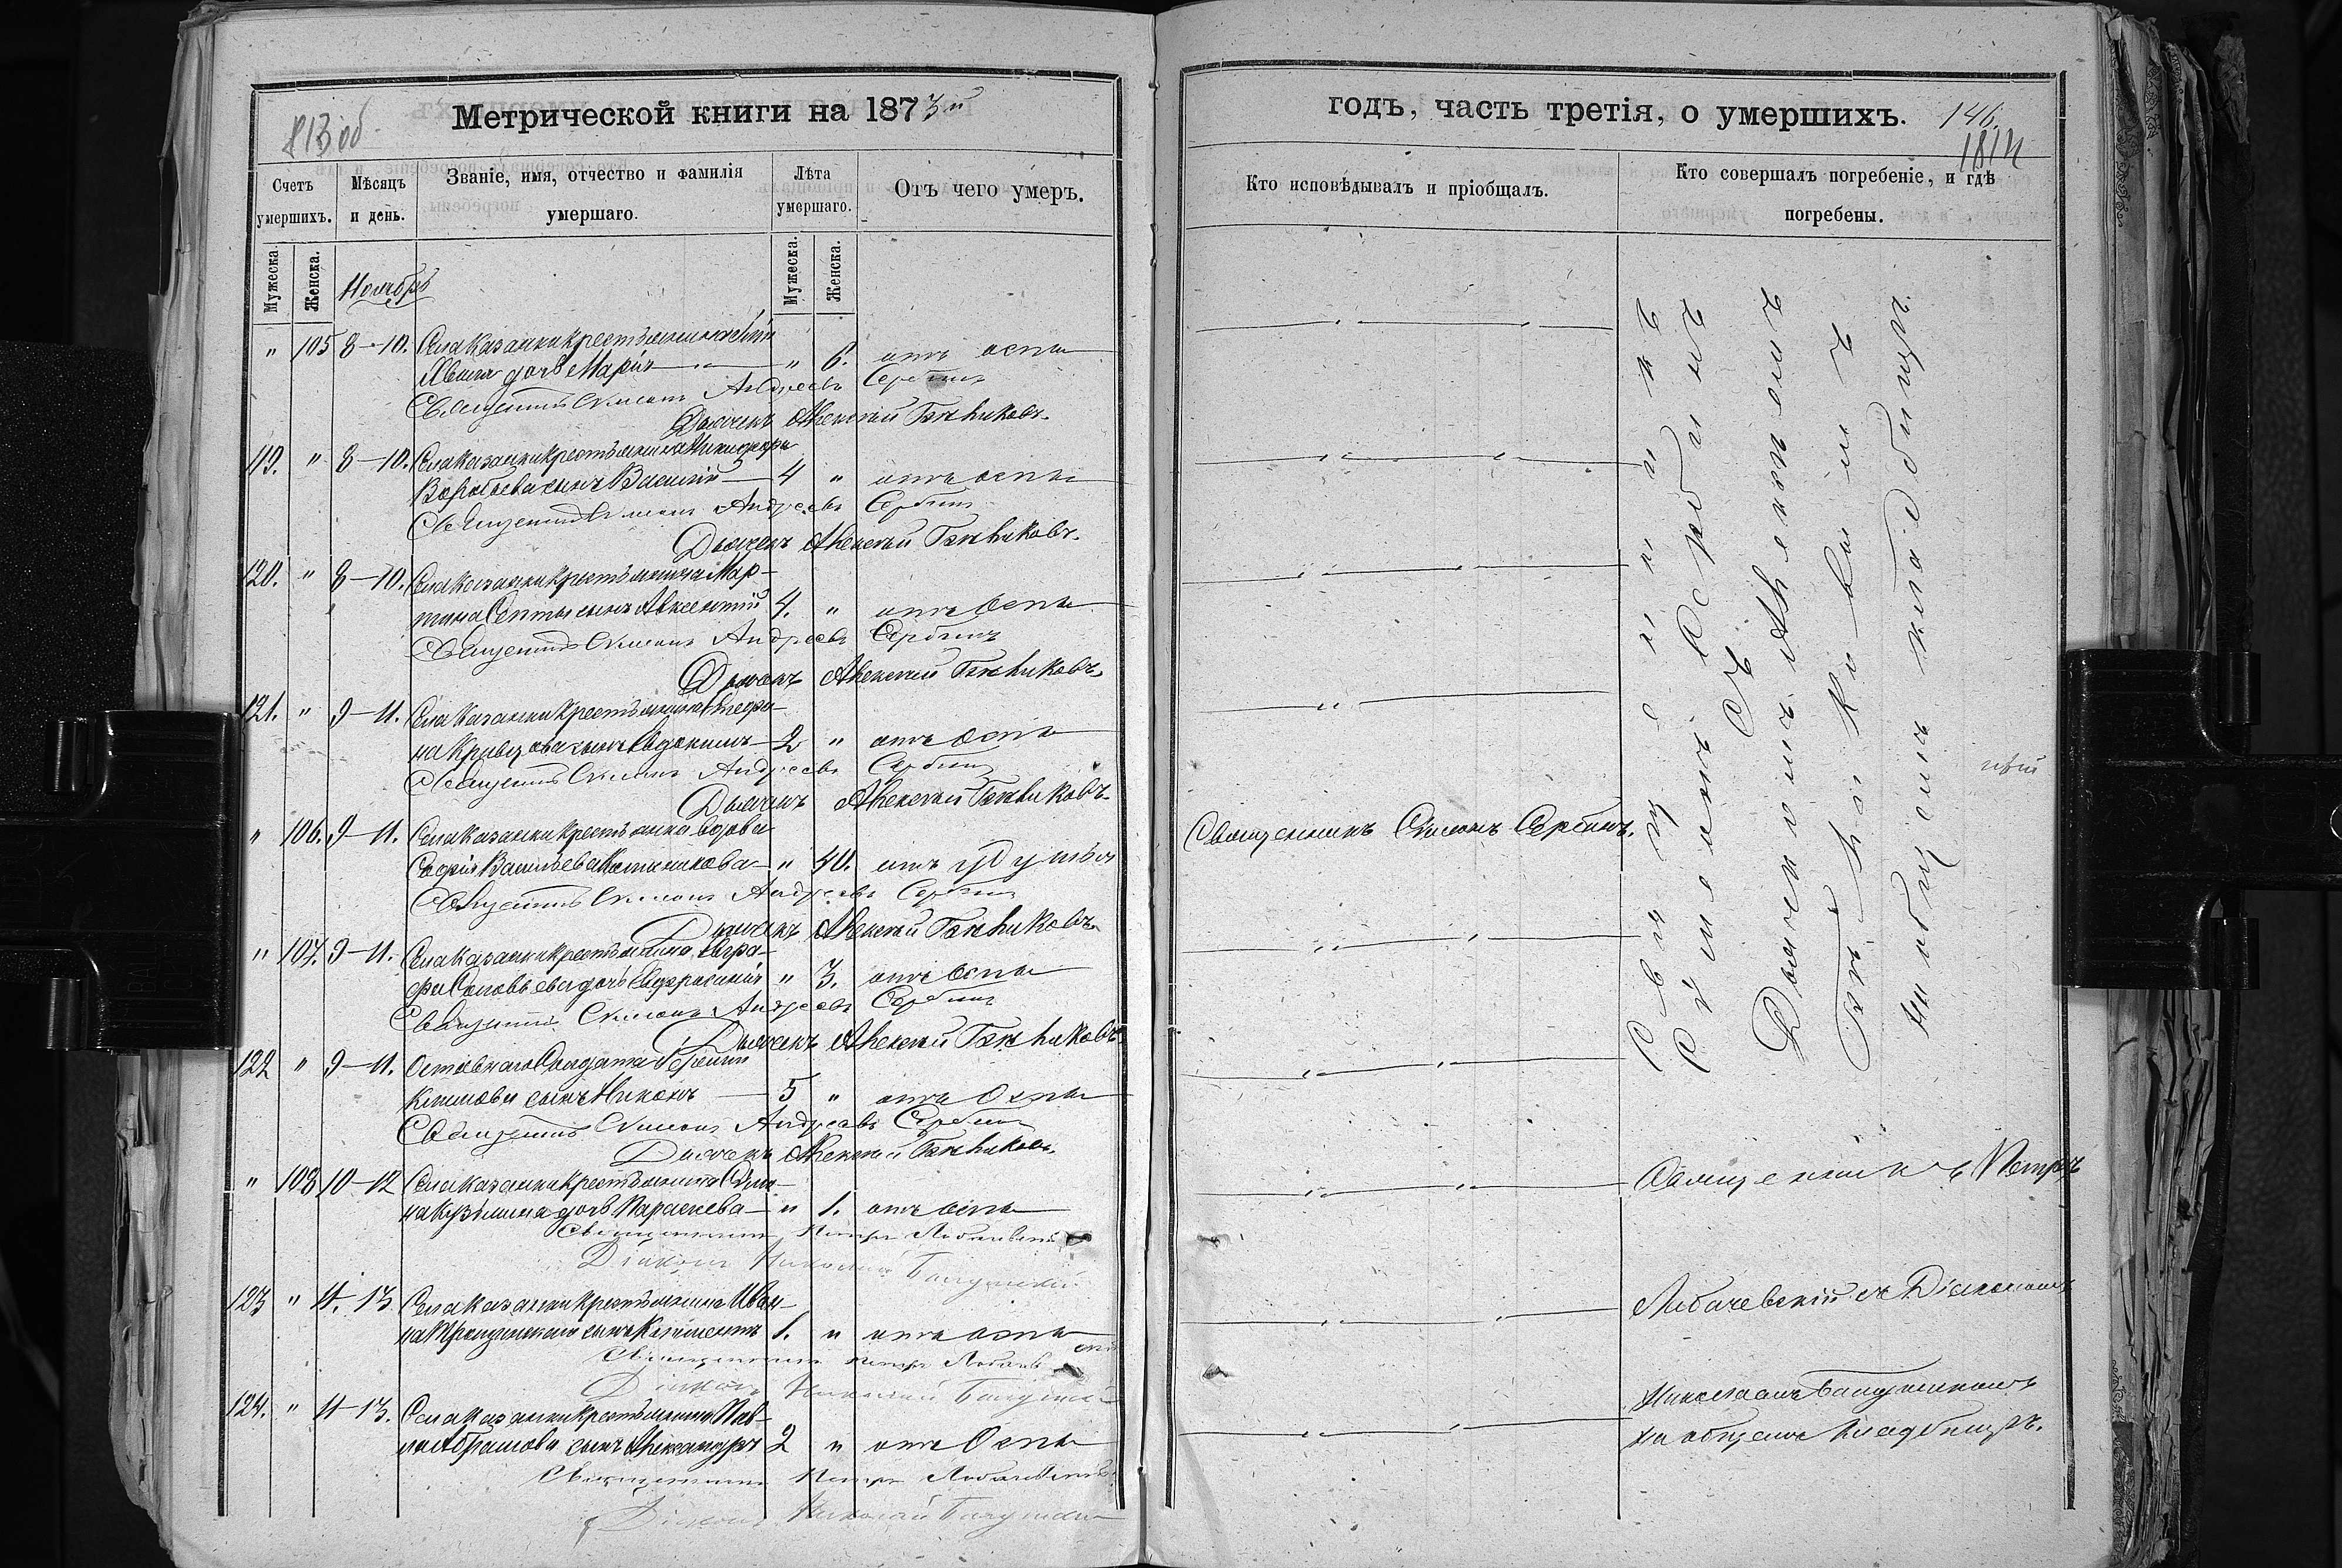 813 об
Метрической книги на 1873й
Счетъ умершихъ.
Мѣсяцъ и день.
Званіе, имя, отчество и фамилія умершаго.
Лѣта умершаго.
Отъ чего умеръ.
Мужеска.
Женска.
Ноябрь
Мужеска.
Женска.
" 105 8-10. Села Казанки крестьянина
дочь Марія " 6. отъ оспы
Священникъ Симеонъ Андреевъ Сербинъ
Дьячекъ Алексѣй
119. " 8-10. Села Казанки крестьянина Никифора
Воробьева сынъ Василій 4 " отъ оспы
Священникъ Симеонъ Андреевъ Сербинъ
Дьячекъ Алексѣй
120. " 8-10. Села Казанки крестьянина Мар-
тина сынъ Авксентій 4. " отъ оспы
Священникъ Симеонъ Андреевъ Сербинъ
Дьячекъ Алексѣй
121. " 9-11. Села Казанки крестьянина Стефа-
на Кравцова сынъ Евдокимъ 2 " отъ оспы
Священникъ Симеонъ Андреевъ Сербинъ
Дьячекъ Алексѣй
" 106. 9-11. Села Казанки крестьянка вдова
Софія Васильева " 40. отъ удушья
Священникъ Симеонъ Андреевъ Сербинъ
Дьячекъ Алексѣй
" 107. 9-11. Села Казанки крестьянина Евгра-
фа Соловьева дочь Евфросинія " 3. отъ оспы
Священникъ Симеонъ Андреевъ Сербинъ
Дьячекъ Алексѣй
122 " 9-11. Отставнаго Солдата
Климова сынъ Никонъ 5 " отъ Оспы
Священникъ Симеонъ Андреевъ Сербинъ
Дьячекъ Алексѣй
" 108 10-12 Села Казанки крестьянина Симо-
на Кузьмина дочь Параскева " 1. отъ оспы
Священникъ Петръ Лобачевскій
Діаконъ Николай
123 " 11-13 Села Казанки крестьянина Ива-
на сынъ Климентъ 1. " отъ оспы
Священникъ Петръ Лобачевскій
Діаконъ Николай
124. " 11-13. Села Казанки крестьянина Пав-
ла Абрамова сынъ Александръ 2 " отъ Оспы
Священникъ Петръ Лобачевскій
Діаконъ Николай
годъ, часть третія, о умершихъ.
146.
1814
Кто исповѣдывалъ и пріобщалъ.
Кто совершалъ погребеніе, и гдѣ погребены.
Священникъ Симонъ Сербинъ.
Священникъ
Симеонъ Сербинъ
съ
Дьячкомъ Алексѣемъ
на общемъ кладбищѣ.
Священникъ Петръ
Лобачевскій съ Діакономъ
Николаемъ
на общемъ кладбищѣ.